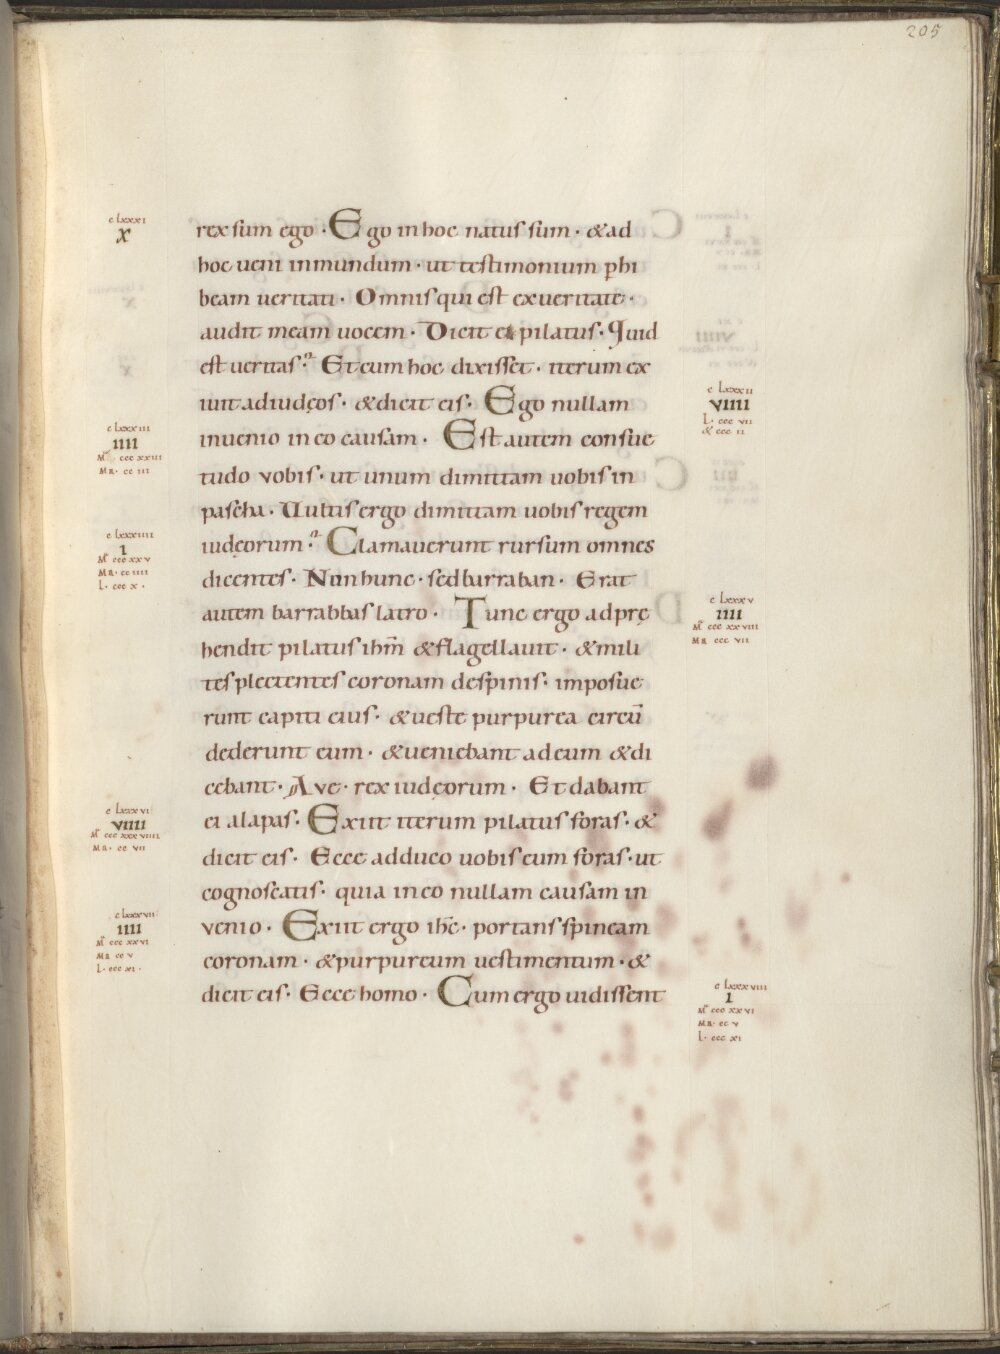 205
c Lxxxi
x
rex sum ego · Ego in hoc natus sum · & ad
hoc ueni in mundum · ut testimonium phi
beam ueritati · Omnis qui est ex ueritate ·
audit meam uocem · Dicit ei pilatus · Quid
est ueritas? Et cum hoc dixisset · iterum ex
iuit ad iudęos · & dicit eis · Ego nullam
c Lxxxii
viiii
L · ccc vii
& ccc ii
c Lxxxiii
iiii
M ccc xxiii
Mr · cc iii
inuenio in eo causam · Est autem consue
tudo vobis · ut unum dimittam uobis in
pascha · Uultis ergo dimittam uobis regem
iudęorum? Clamauerunt rursum omnes
c Lxxxiiii
i
M ccc xxv
Mr · cc iiii
L · ccc x ·
dicentes · Non hunc · sed barraban · Erat
autem barrabbas latro · Tunc ergo adprę
c Lxxxv
iiii
M ccc xxviii
Mr ccc vii
hendit pilatus ihm̄ & flagellauit · & mili
tes plectentes coronam de spinis · imposue
runt capiti eius · & ueste purpurea circū
dederunt eum · & ueniebant ad eum & di
cebant · Ave · rex iudęorum · Et dabant
c Lxxxvi
viiii
M ccc xxxviiii
Mr · cc vii
ei alapas · Exiit iterum pilatus foras · &
dicit eis · Ecce adduco uobis eum foras · ut
cognoscatis · quia in eo nullam causam in
c Lxxxvii
iiii
M ccc xxvi
Mr cc v
L · ccc xi ·
venio · Exiit ergo ihc̄ · portans spineam
coronam · & purpureum uestimentum · &
dicit eis · Ecce homo · Cum ergo uidissent
c Lxxxviii
i
M ccc xxvi
Mr · cc v
L · ccc xi